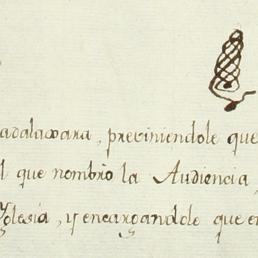 adalaxara, previniendole que
l que nombrò la Audiencia,
Yglesia, y encargandole que en